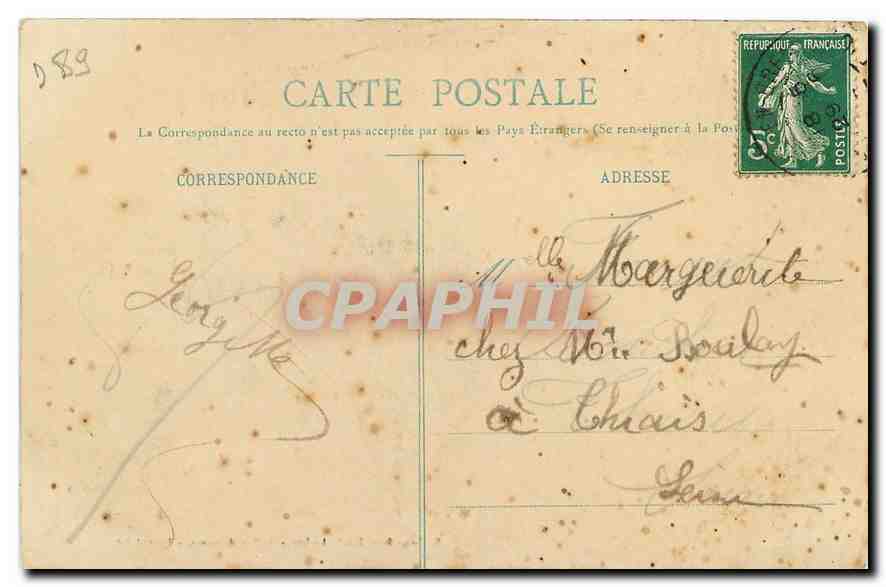 D 89
REPUBLIQUE FRANÇAISE
5c
POSTES
CARTE POSTALE
La Correspondance au recto n'est pas acceptée par tous les Pays Étrangers (Se renseigner à la Pos
CORRESPONDANCE
ADRESSE
Mlle Marguerite
chez Mr Boulay
à Thiais
Seine
Georgette
CPAPHIL